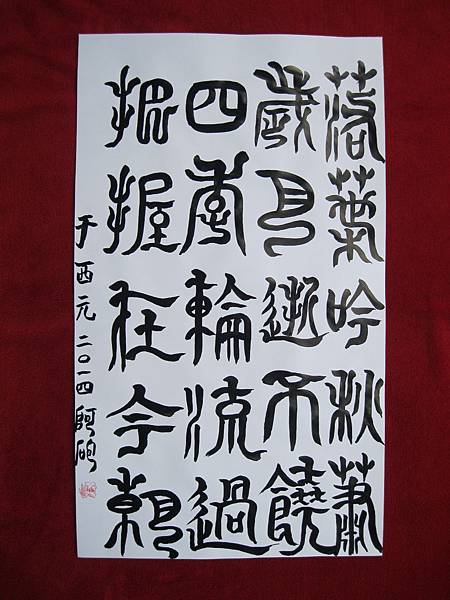 落葉吟秋蕭
歲月逝不饒
四季輪流過
把握在今朝
于西元二〇一四